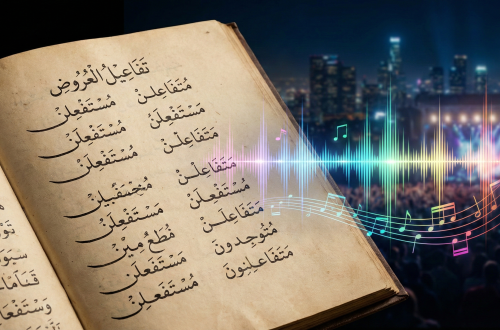 تَفَاعِيلُ الْعُرُوضِ
مُتَفَاعِلـنْ مُسْتَفْعِلُنْ
مُسْتَفْعِلُنْ مُسْتَفْعِلُنْ
مُتَفَاعِلُنْ مُسْتَفْعِلُنْ
مُتَفَاعِلُنْ
مُسْتَفْعِلَنْ مُسْتَفْعِلُنْ
مُتَفَاعَلَنْ فُطَعُ مِيْنْ
مَتَوُجِدونَ مُسْتَفْعَلَنْ
مَتَفَاعَلِنُونَ مُسْتَفْعِلُنْ